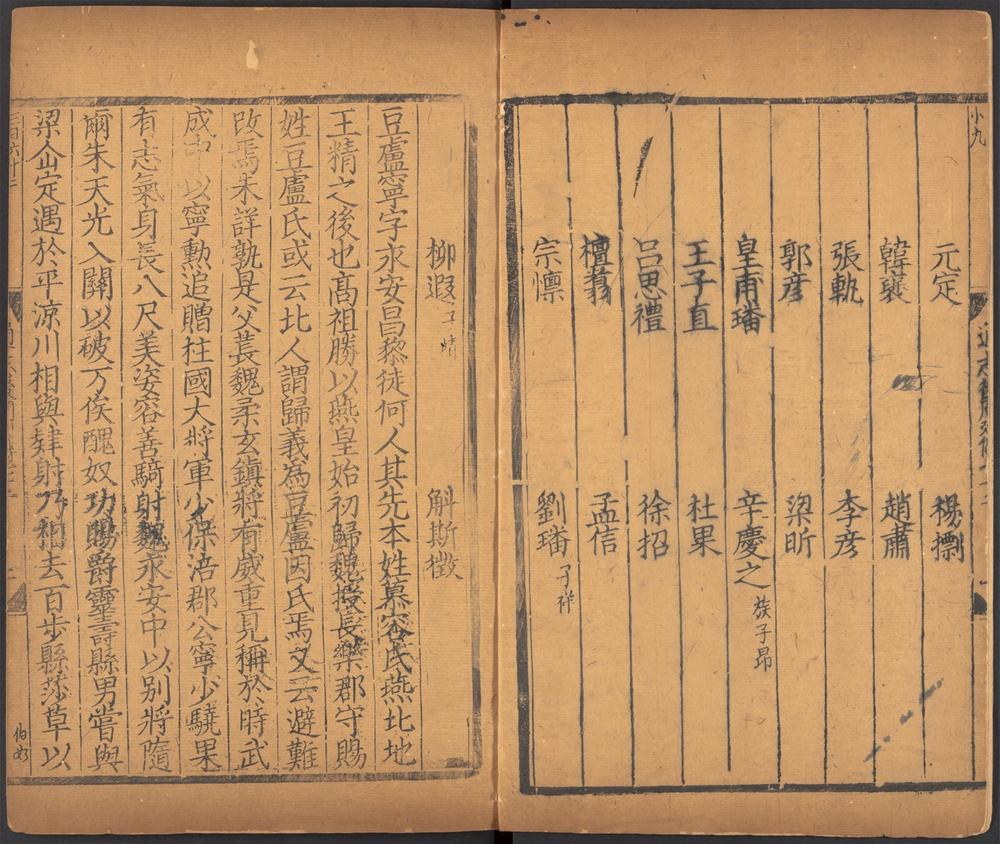 小九
元定 楊㩾
韓襃 趙肅
張軌 李彥
郭彥 梁昕
皇甫璠 辛慶之 族子昂
王子直 杜杲
呂思禮 徐招
檀翥 孟信
宗懍 劉璠 子祥
柳遐 子靖 斛斯徵
豆盧寧字永安昌黎徒何人其先本姓慕容氏燕北地
王精之後也高祖勝以燕皇始初歸魏授長樂郡守賜
姓豆盧氏或云北人謂歸義爲豆盧因氏焉又云避難
改焉未詳孰是父萇魏柔玄鎮將有威重見稱於時武
成中以寧勳追贈柱國大將軍少保涪郡公寧少驍果
有志氣身長八尺美姿容善騎射魏永安中以別將隨
爾朱天光入關以破万俟醜奴功賜爵靈壽縣男嘗與
梁仚定遇於平涼川相與肄射乃相去百步縣莎草以